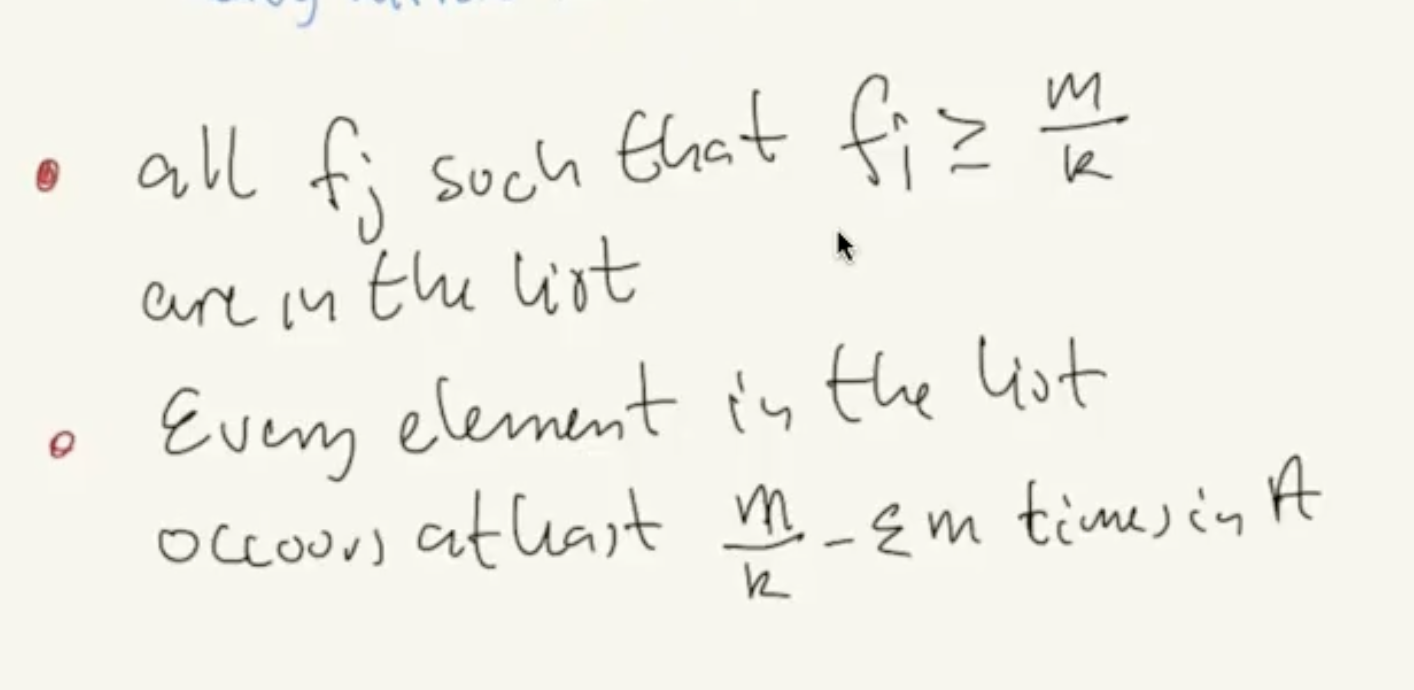 • all fj such that fj ≥ m/k
are in the list
• Every element in the list
occours at least m/k - εm times in A